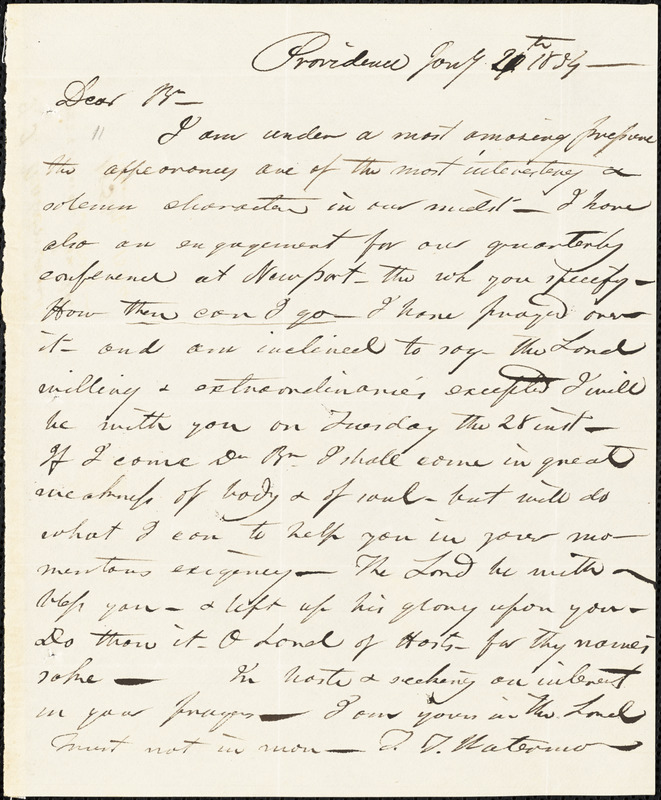 Providence Jany 20th 1834 —
Dear Br —
I am under a most amazing pressure
the appearances are of the most interesting &
solemn character in our midst — I have
also an engagement for our quarterly
conference at Newport — the wk you specify —
How then can I go — I have prayed over
it — and am inclined to say — the Lord
willing & extraordinaries excepted I will
be with you on Tuesday the 28 inst —
If I come Dr Br I shall come in great
weakness of body & of soul — but will do
what I can to help you in your mo-
mentous exigency — The Lord be with —
bless you — & lift up his glory upon you —
Do thou it — O Lord of Hosts — for thy name's
sake — In haste & seeking an interest
in your prayers — I am yours in the Lord
Trust not in man — T. T. Waterman